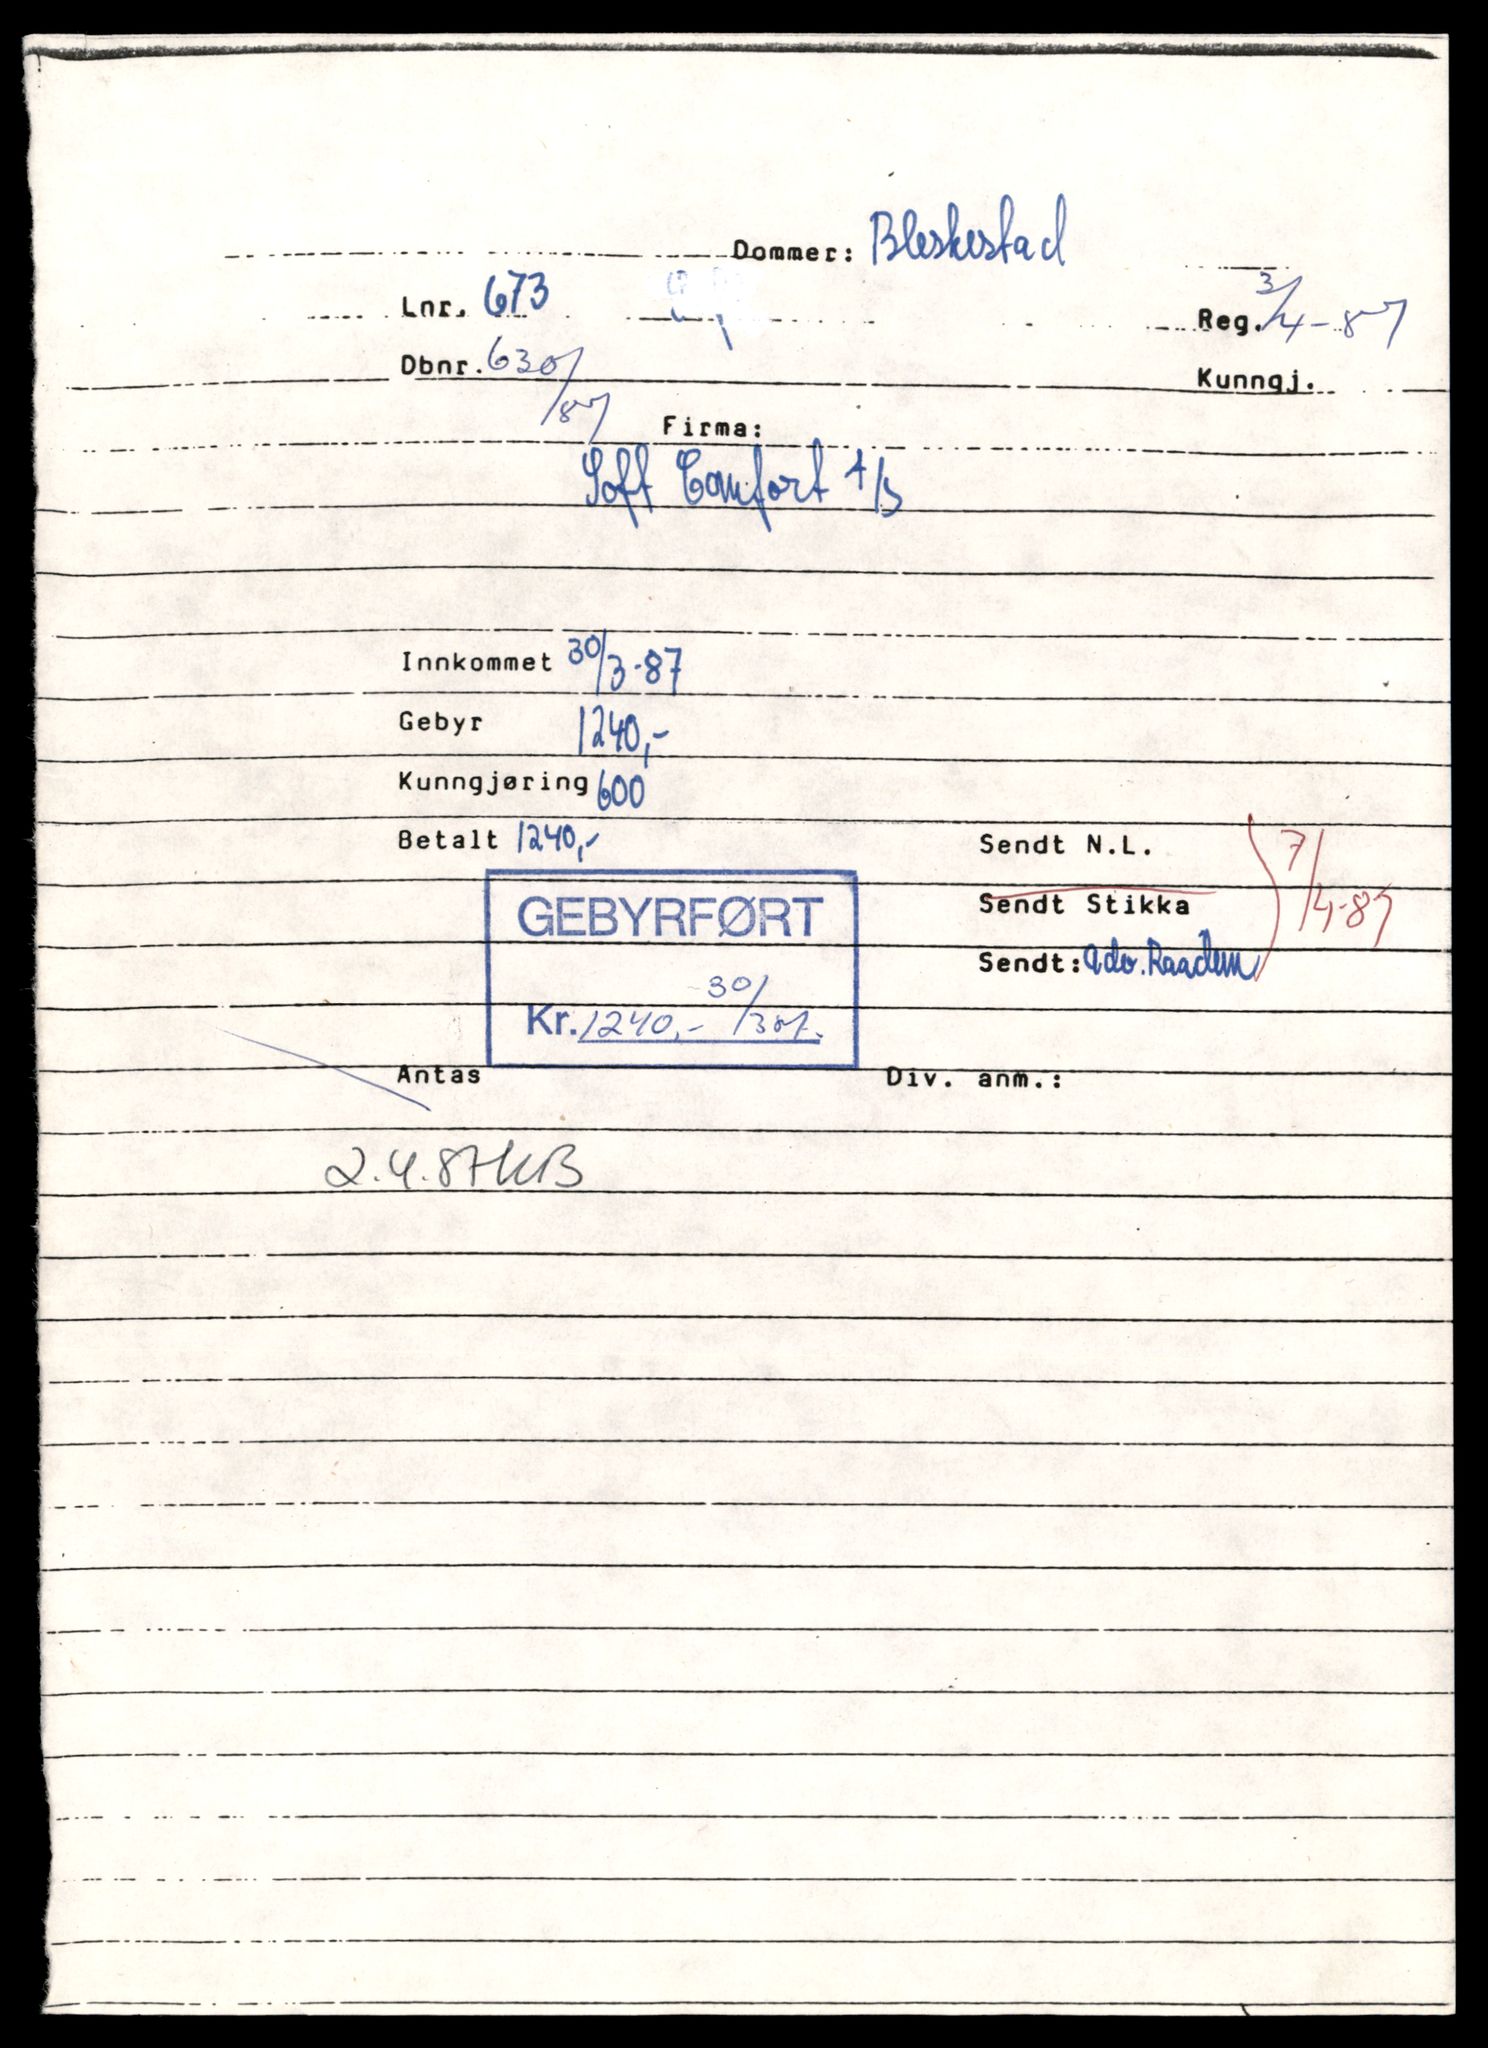 Dommer: Bleskestad
Lnr. 673
Reg. 3/4-87
Dbnr. 630/87
Kunngj.
Firma:
Soft Comfort A/S
Innkommet 30/3-87
Gebyr 1240,-
Kunngjøring 600
Betalt 1240,-
Sendt N.L.
7/4-87
Sendt Stikka
Sendt: adv. Raadem
GEBYRFØRT
30/3 87.
Kr. 1240,-
Antas
Div. anm.:
2.4.87 KB